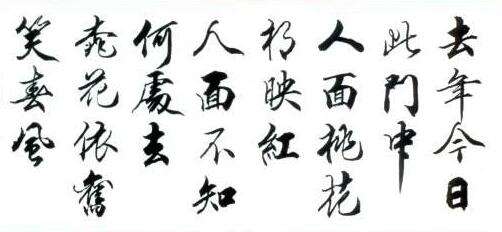 去年今日
此門中
人面桃花
相映紅
人面不知
何處去
桃花依舊
笑春風